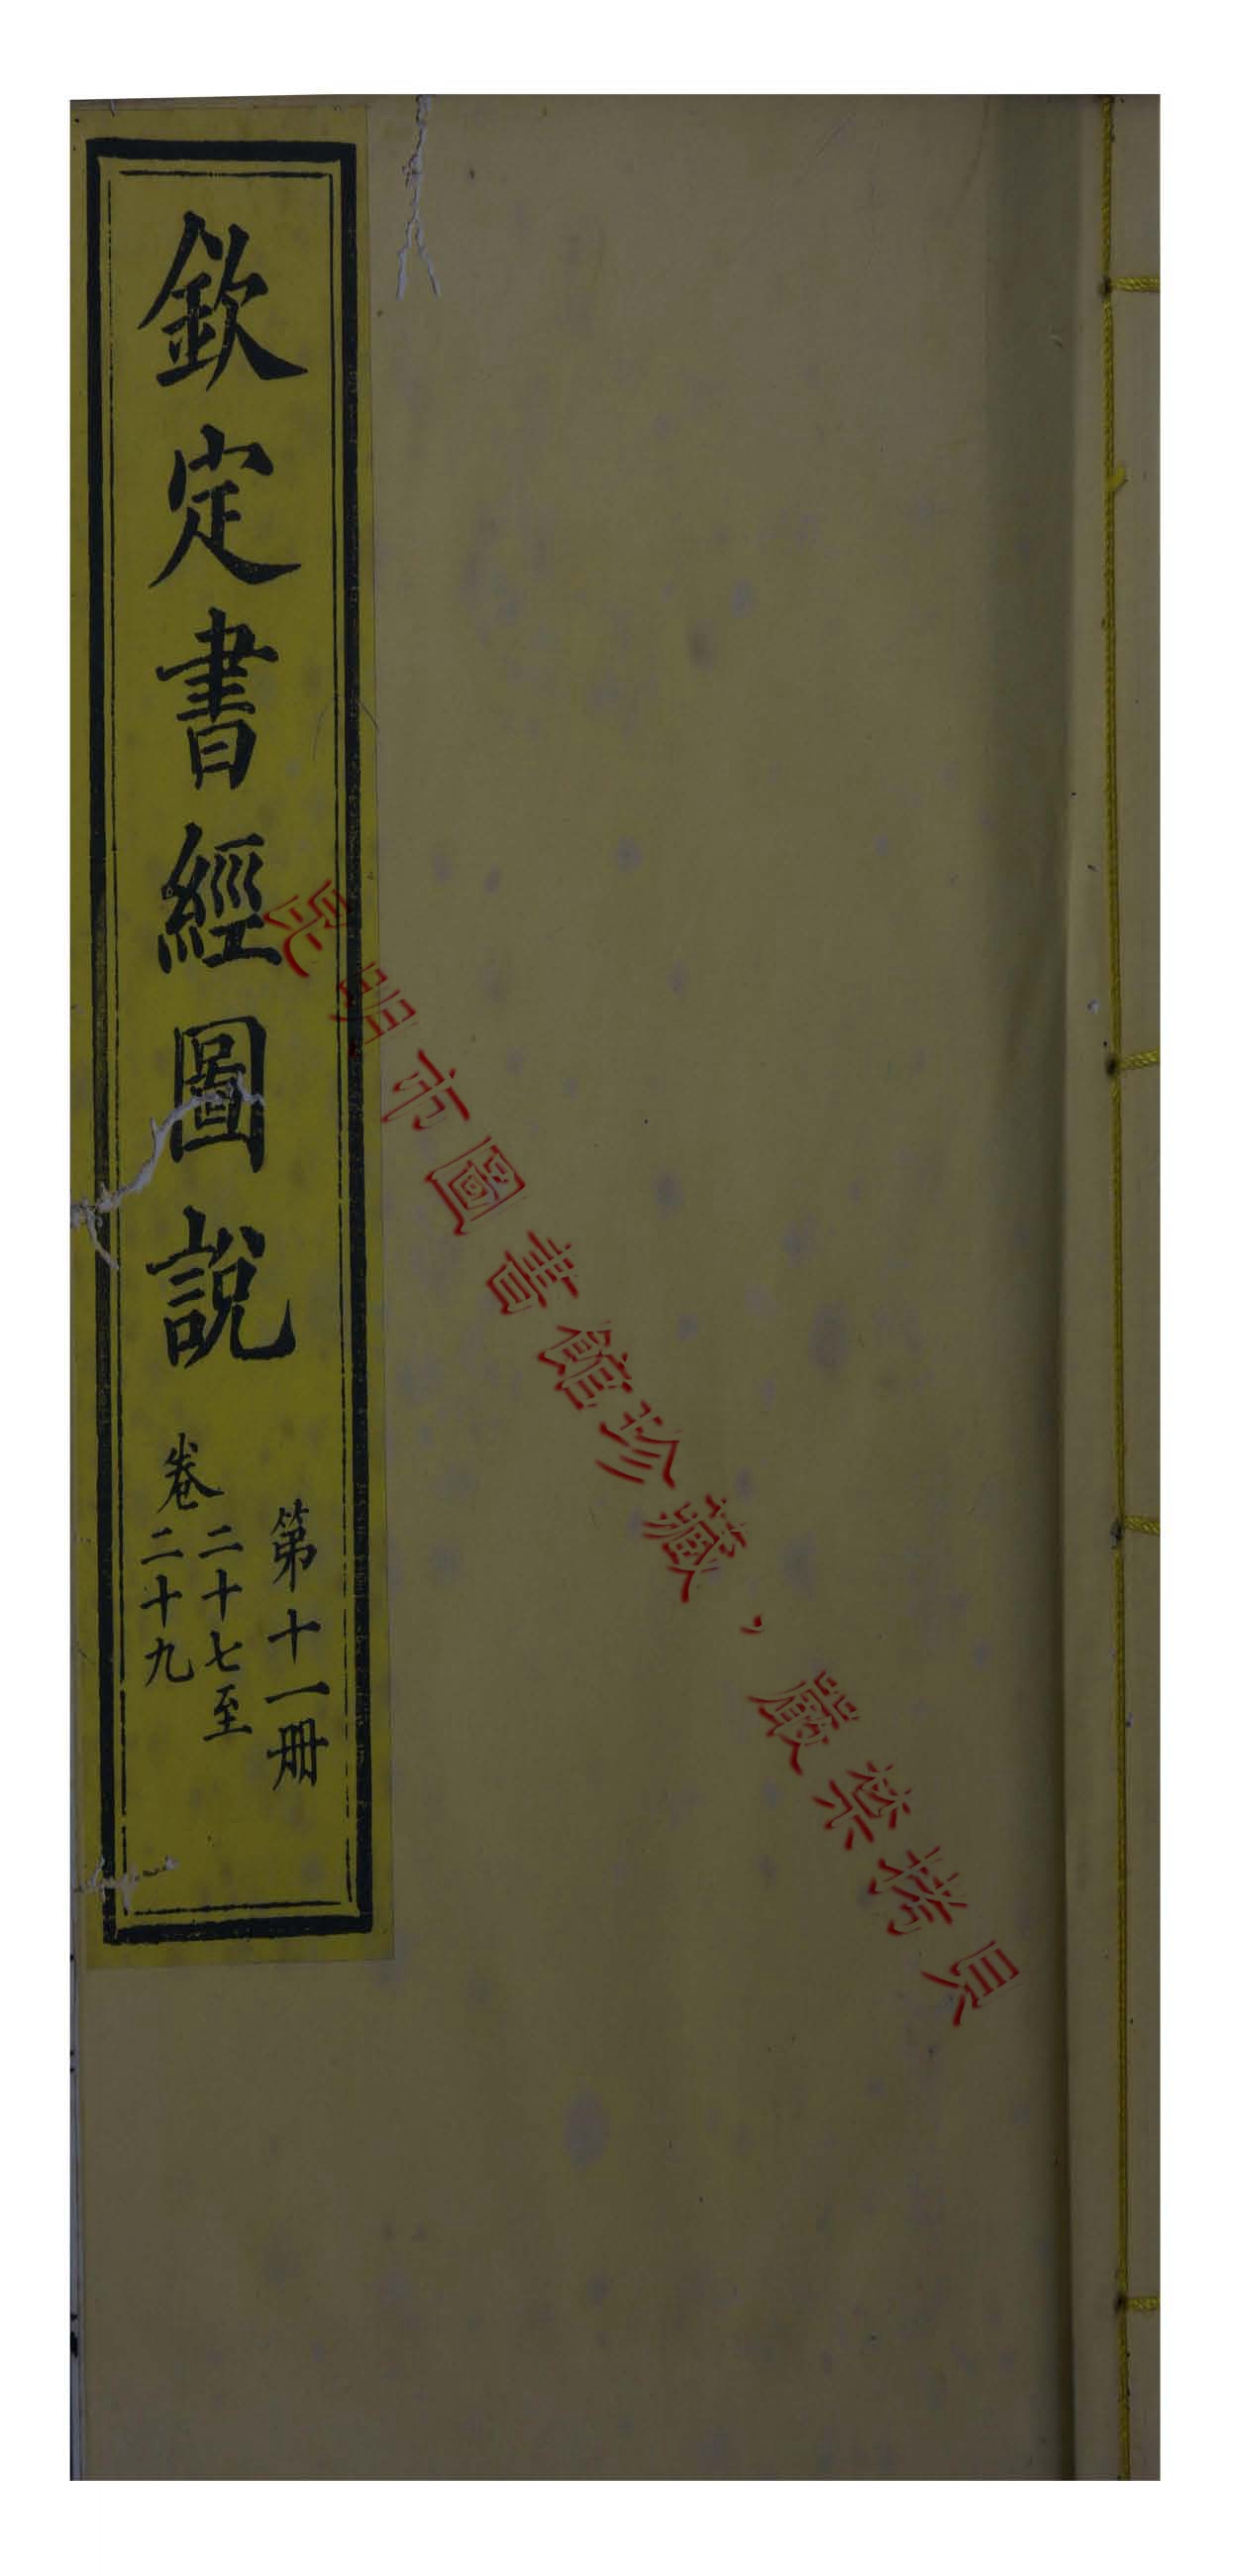 欽定書經圖說
第十一冊
卷二十七至
二十九
昆明市圖書館珍藏，嚴禁拷貝